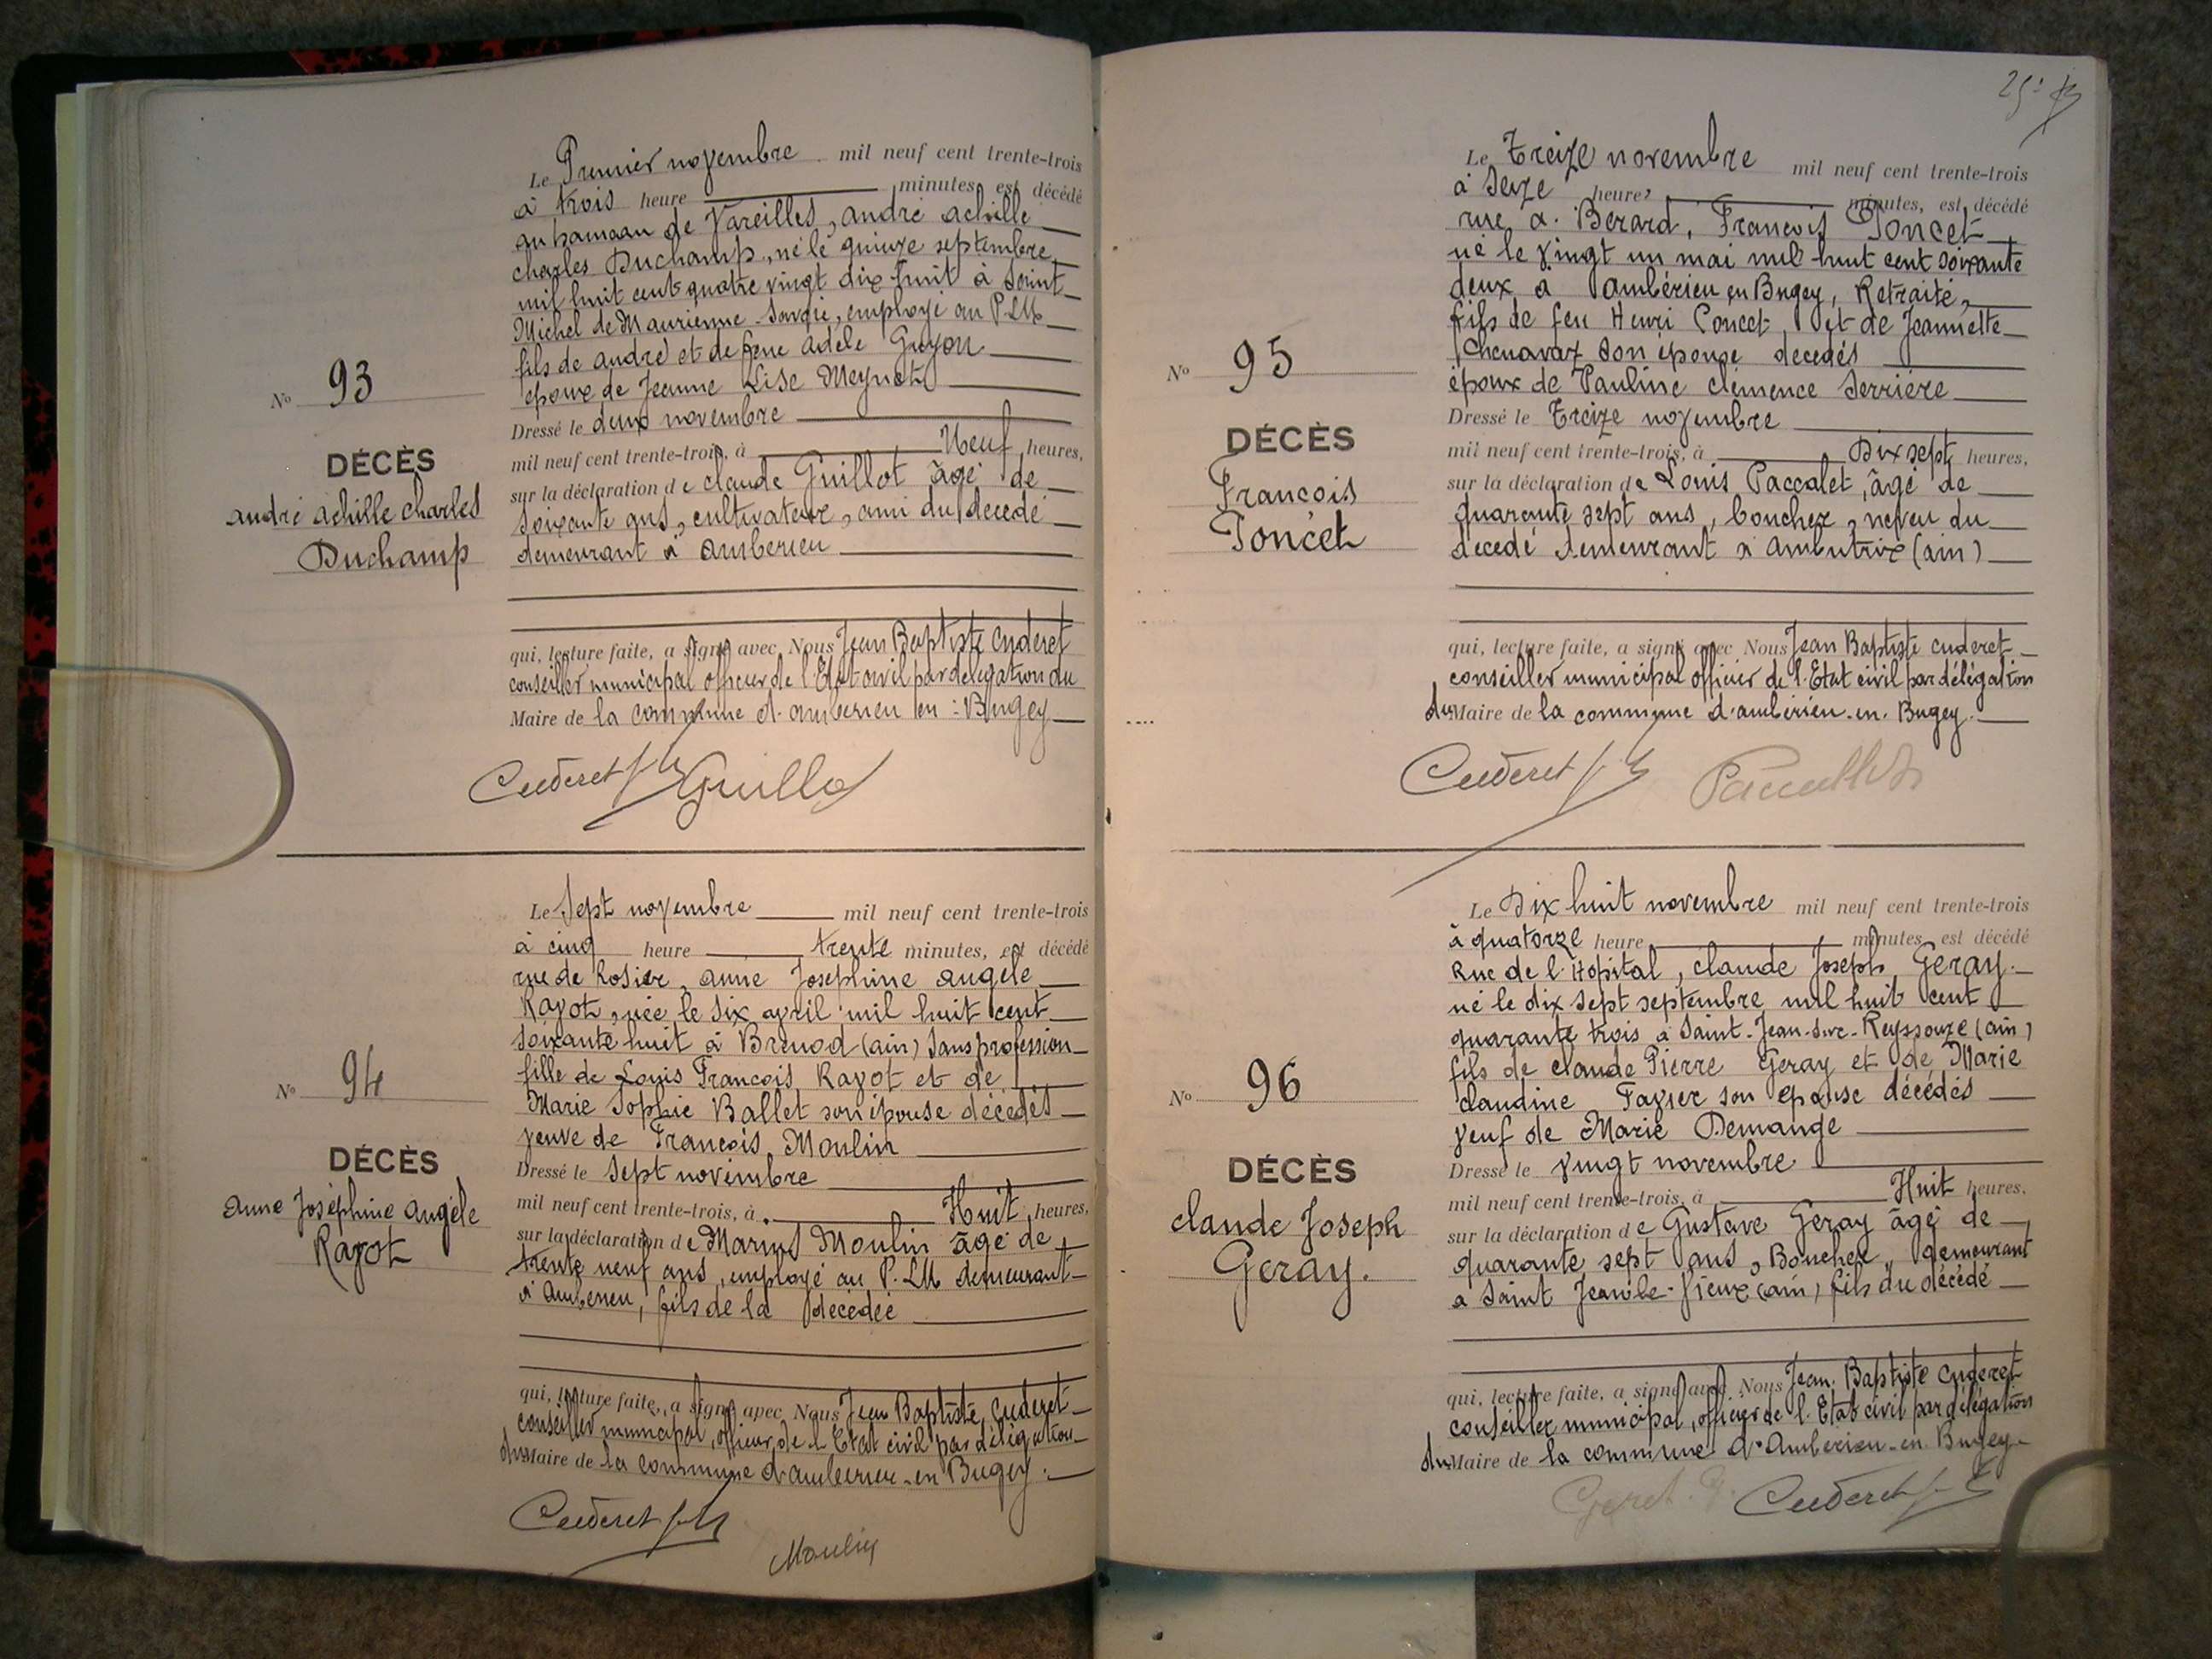 Le Premier novembre mil neuf cent trente-trois
à trois heure minutes, est décédé
au hameau de Vareilles, andré achille
charles Duchamp, né le quinze septembre
mil huit cent quatre vingt dix huit à Saint
Michel de Maurienne Savoie, employé au P.L.M
fils de andré et de feue adèle Guyon
époux de Jeanne Lise Meynet
Dressé le deux novembre
mil neuf cent trente-trois, à Neuf heures,
sur la déclaration de claude Guillot âgé de
soixante ans, cultivateur, ami du décédé
demeurant à Ambérieu
qui, lecture faite, a signé avec Nous Jean Baptiste Cuderet
conseiller municipal officier de l'Etat civil par délégation du
Maire de la commune d'ambérieu en-Bugey
Cuderet Guillo
No 93
DÉCÈS
andré achille charles
Duchamp
Le Sept novembre mil neuf cent trente-trois
à cinq heure trente minutes, est décédé
rue de Rosier, anne Josephine angèle
Ravot, née le six avril mil huit cent
soixante huit à Brénod (ain) sans profession
fille de Louis François Ravot et de
Marie Sophie Ballet son épouse décédés
veuve de François Moulin
Dressé le Sept novembre
mil neuf cent trente-trois, à Huit heures,
sur la déclaration de Marius Moulin âgé de
trente neuf ans, employé au P.L.M demeurant
à Ambérieu, fils de la décédée
qui, lecture faite, a signé avec Nous Jean Baptiste Cuderet
conseiller municipal, officier de l'Etat civil par délégation
du Maire de la commune d'ambérieu-en Bugey.
Cuderet
Moulin
No 94
DÉCÈS
Anne Joséphine Angèle
Ravot
25
Le Treize novembre mil neuf cent trente-trois
à Seize heures minutes, est décédé
rue A. Bérard, François Poncet
né le vingt un mai mil huit cent soixante
deux à Ambérieu en Bugey, Retraité,
fils de feu Henri Poncet, et de Jeannette
Chenavaz son épouse décédés
époux de Pauline clémence Serrière
Dressé le Treize novembre
mil neuf cent trente-trois, à Dix sept heures,
sur la déclaration de Louis Paccalet, âgé de
quarante sept ans, boucher, neveu du
décédé demeurant à Ambutrix (ain)
qui, lecture faite, a signé avec Nous Jean Baptiste cuderet
conseiller municipal officier de l'Etat civil par délégation
du Maire de la commune d'ambérieu-en-Bugey.
Cuderet
No 95
DÉCÈS
François
Poncet
Le Dix huit novembre mil neuf cent trente-trois
à quatorze heure minutes, est décédé
Rue de l'Hôpital, claude Joseph Geray.
né le dix sept septembre mil huit cent
quarante trois à Saint-Jean-sur-Reyssouze (ain)
fils de claude Pierre Geray et de Marie
claudine Favier son épouse décédés
veuf de Marie Demange
Dressé le vingt novembre
mil neuf cent trente-trois, à Huit heures.
sur la déclaration de Gustave Geray âgé de
quarante sept ans, Boucher, demeurant
à Saint Jean-le-Vieux (ain) fils du décédé
qui, lecture faite, a signé avec Nous Jean Baptiste Cuderet
conseiller municipal, officier de l'Etat civil par délégation
du Maire de la commune d'Ambérieu-en Bugey-
Cuderet
No 96
DÉCÈS
claude Joseph
Geray.